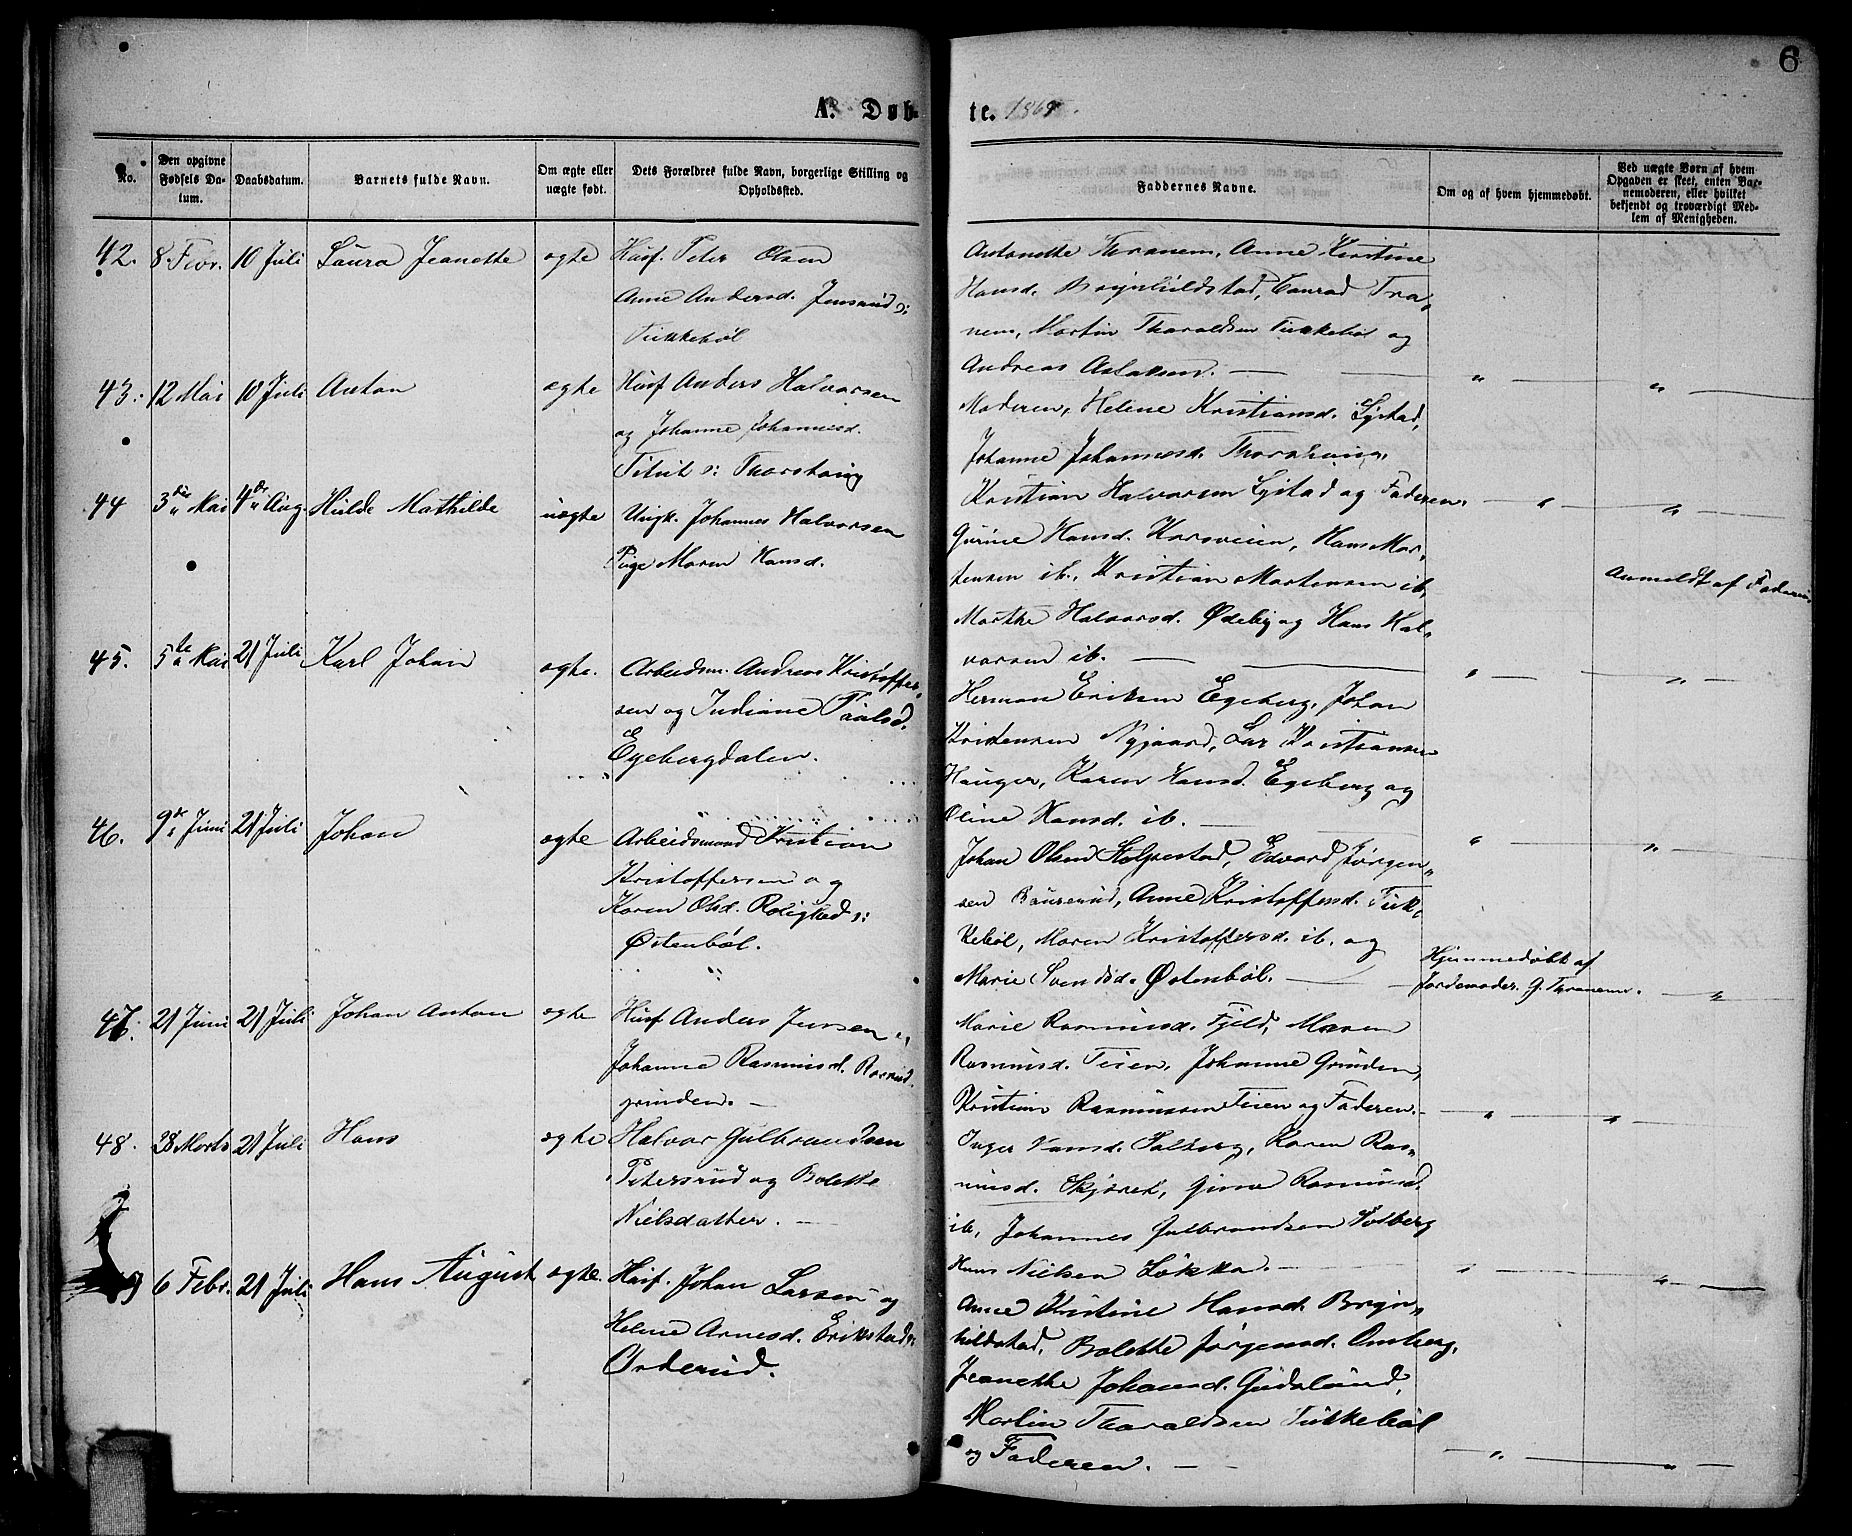 6
A. Døbte. 1869.
No.
Den opgivne Fødsels Datum.
Daabsdatum.
Barnets fulde Navn.
Om ægte eller uægte født.
Dets Forældres fulde Navn, borgerlige Stilling og Opholdssted.
Faddernes Navne.
Om og af hvem hjemmedøbt.
Ved uægte Børn af hvem Opgaven er skeet, enten Barnemoderen, eller hvilket bekjendt og troværdigt Medlem af Menigheden.
42. 8. Febr. 10 Juli Laura Jeanette ægte Husf. Peter Olsen
Anne Andersd. Jensrud s:
Tukkebøl
Antonette Thranem, Anne Kristine
Hansd. Brynhildstad, Conrad Tra-
nem, Martin Tharaldsen Tukkebøl og
Andreas Aslaksen. — "  — "
43. 12 Mai 10 Juli Anton ægte Husf Anders Halvorsen
og Johanne Johannesd.
Titut s: Thorshaug
Moderen, Helene Kristiansd. Lystad,
Johanne Johannesd. Thorshaug,
Kristian Halvorsen Lystad og Faderen. — " — "
44 3die Mai 4de Aug. Hulde Mathilde uægte Ungk. Johannes Halvorsen
Pige Maren Hansd.
Gurine Hansd. Korsveien, Hans Mor-
tensen ib., Kristian Mortensen ib,
Marthe Halvorsd. Ødeby og Hans Hal-
vorsen ib. — " — "
Anmeldt af Faderen
45. 5te Mai 21 Juli Karl Johan ægte. Arbeidsm. Andreas Kristoffer-
sen og Indiane Paulsd.
Egebergdalen.
Herman Eriksen Egeberg, Johan
Kristensen Nygaard, Lar Kristiansen
Hauger, Karen Hansd. Egeberg og
Oline Hansd. ib. — " — "
46. 9de Juni 21 Juli Johan ægte Arbeidsmand Kristian
Kristoffersen og
Karen Olsd. Rolighed s:
Østenbøl.
Johan Olsen Stolpestad, Edvard Jørgen-
sen Baurerud, Anne Kristoffersd. Tuk-
kebøl, Maren Kristoffersd. ib. og
Marie Svendsd. Østenbøl. —
Hjemmedøbt af
Jordemoder G. Thranem. — "
47. 21 Juni 21 Juli Johan Anton ægte Husf Anders Jensen og
Johanne Rasmusd. Rosrud
grinden. —
Marie Rasmusd. Fjeld, Maren
Rasmusd. Teien, Johanne Grinden,
Kristian Rasmussen Teien og Faderen. — " — "
48. 28 Marts 21 Juli Hans ægte Halvor Gulbrandsen
Petersrud og Bolette
Nielsdatter. —
Inger Hansd. Solberg, Karen Ras-
musd. Skjøret, Gina Rasmusd.
ib, Johannes Gulbrandsen Solberg
Hans Nielsen Løkka. — " — "
49 6 Febr. 21 Juli Hans August ægte. Husf. Johan Larsen og
Helene Arnesd. Erikstad s:
Orderud.
Anne Kristine Hansd. Bryn-
hildstad, Bolette Jørgensd. Omberg,
Jeanette Johansd. Gudslund,
Martin Tharaldsen Tukkebøl
og Faderen. — " — "